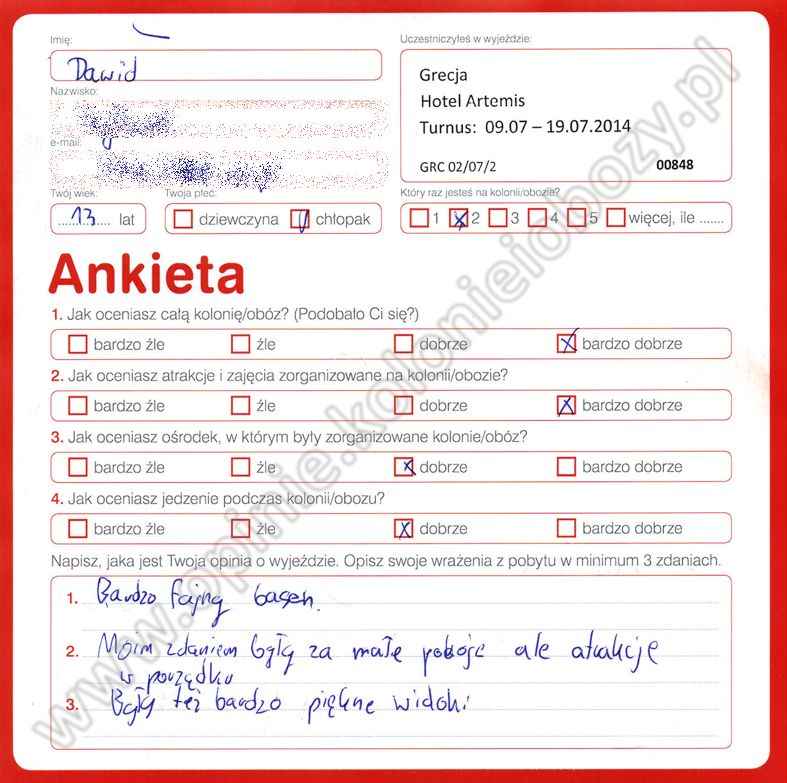 Imię:
Dawid
Nazwisko:
e-mail:
Twój wiek:
13 lat
Twoja płeć:
dziewczyna chłopak
Uczestniczyłeś w wyjeździe:
Grecja
Hotel Artemis
Turnus: 09.07 – 19.07.2014
GRC 02/07/2 00848
Który raz jesteś na kolonii/obozie?
1 2 3 4 5 więcej, ile .......
Ankieta
1. Jak oceniasz całą kolonię/obóz? (Podobało Ci się?)
bardzo źle źle dobrze bardzo dobrze
2. Jak oceniasz atrakcje i zajęcia zorganizowane na kolonii/obozie?
bardzo źle źle dobrze bardzo dobrze
3. Jak oceniasz ośrodek, w którym były zorganizowane kolonie/obóz?
bardzo źle źle dobrze bardzo dobrze
4. Jak oceniasz jedzenie podczas kolonii/obozu?
bardzo źle źle dobrze bardzo dobrze
Napisz, jaka jest Twoja opinia o wyjeździe. Opisz swoje wrażenia z pobytu w minimum 3 zdaniach.
1. Bardzo fajny basen.
2. Moim zdaniem były za małe pokoje ale atrakcje
w porządku
3. Były też bardzo piękne widoki
www.opinie.kolonieiobozy.pl